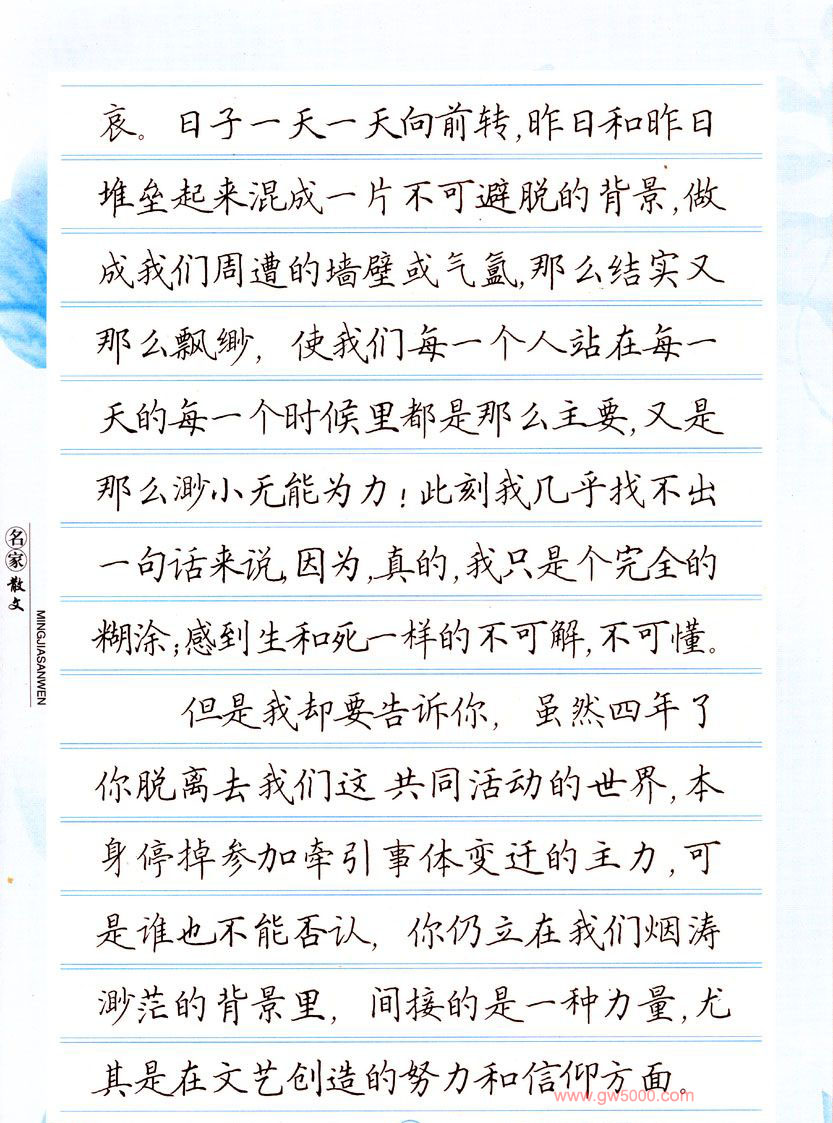 哀。日子一天一天向前转,昨日和昨日
堆垒起来混成一片不可避脱的背景,做
成我们周遭的墙壁或气氲,那么结实又
那么飘缈，使我们每一个人站在每一
天的每一个时候里都是那么主要,又是
那么渺小无能为力！此刻我几乎找不出
一句话来说,因为,真的,我只是个完全的
糊涂;感到生和死一样的不可解,不可懂。
但是我却要告诉你，虽然四年了
你脱离去我们这共同活动的世界,本
身停掉参加牵引事体变迁的主力,可
是谁也不能否认，你仍立在我们烟涛
渺茫的背景里，间接的是一种力量,尤
其是在文艺创造的努力和信仰方面。
名家散文
MINGJIASANWEN
www.gw5000.com